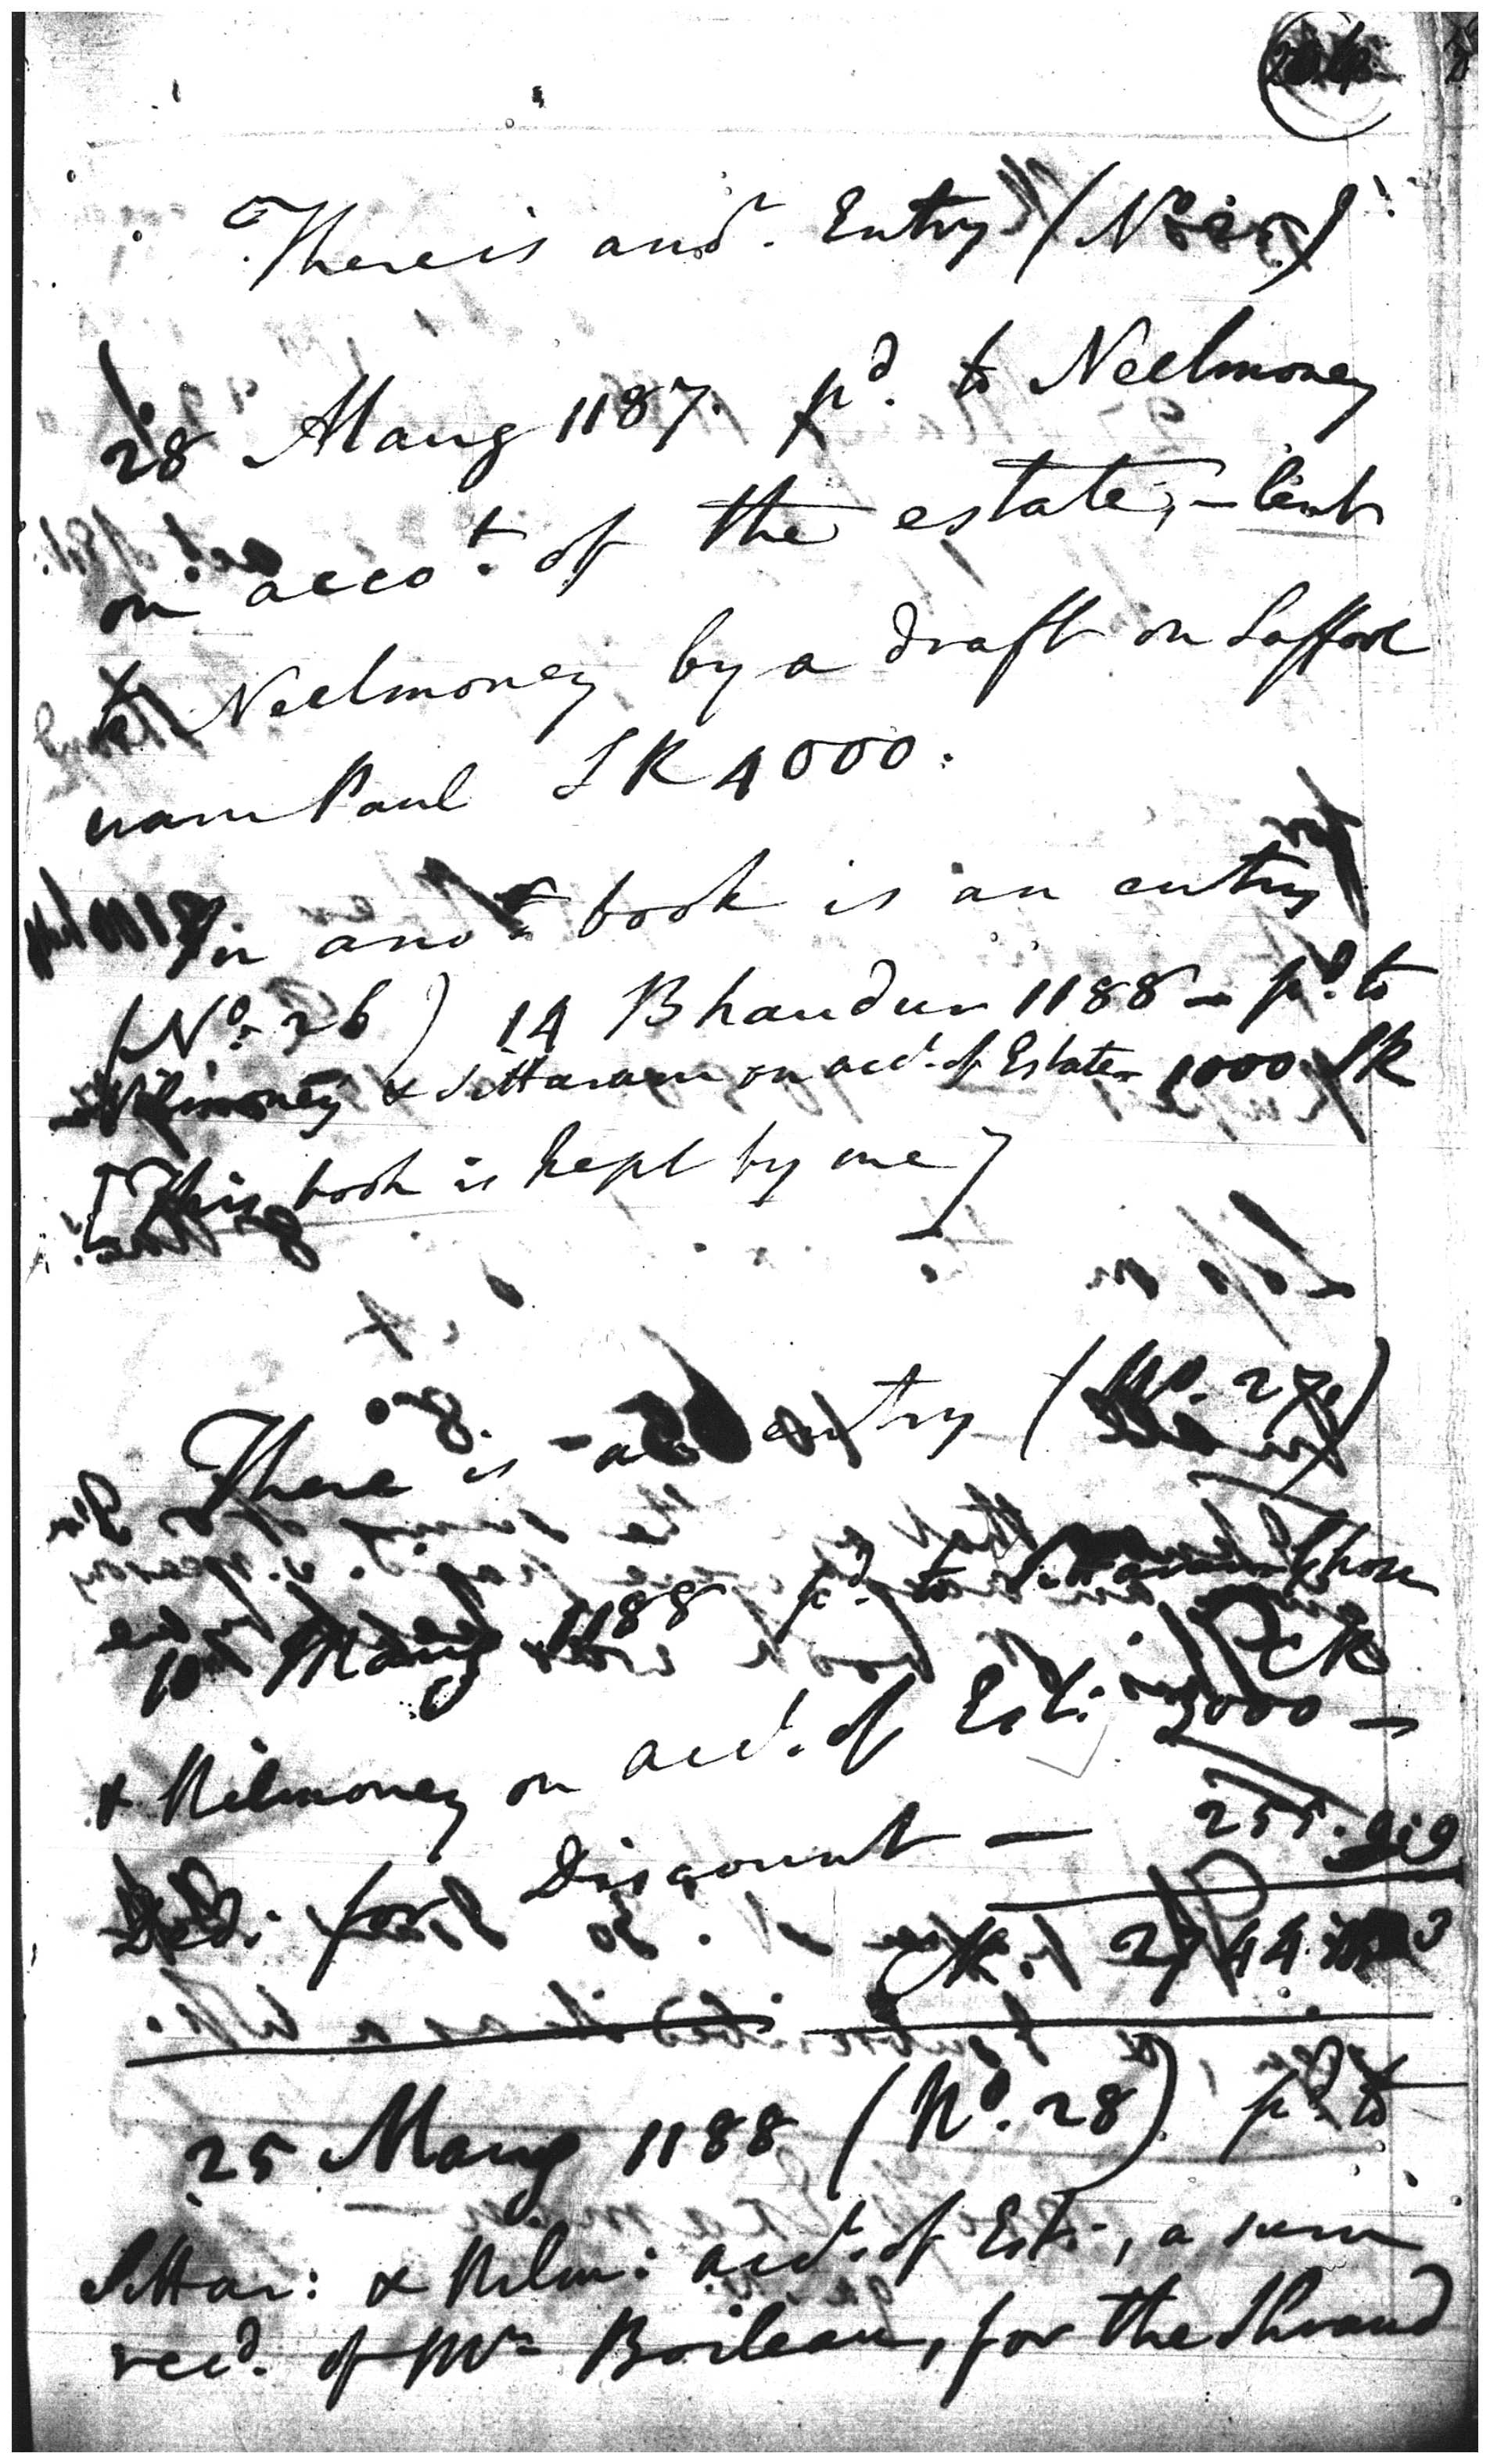 There is anor. Entry (No. 25)
28 Maug 1187. pd. to Neelmoney
on accot. of the estate, – lent
to Neelmoney by a draft on Saffool
naram Paul SR 4000.
In anor. book is an entry
(No. 26) 14 Bhaudur 1188 – pd. to
Nilmoney & Sittaram on acct. of Estate 1000 SR
[This book is kept by me]
There is an entry (No. 27)
10 Maug 1188 pd. to Sittaram Ghose
& Nilmoney on acct. of Est: 3000 –
Ded. for Discount — 255.
25 Maug 1188 (No. 28) pd. to
Sittar: & Nilm: acct. of Est:, a sum
recd. of Mr Boileau, for the Shraud